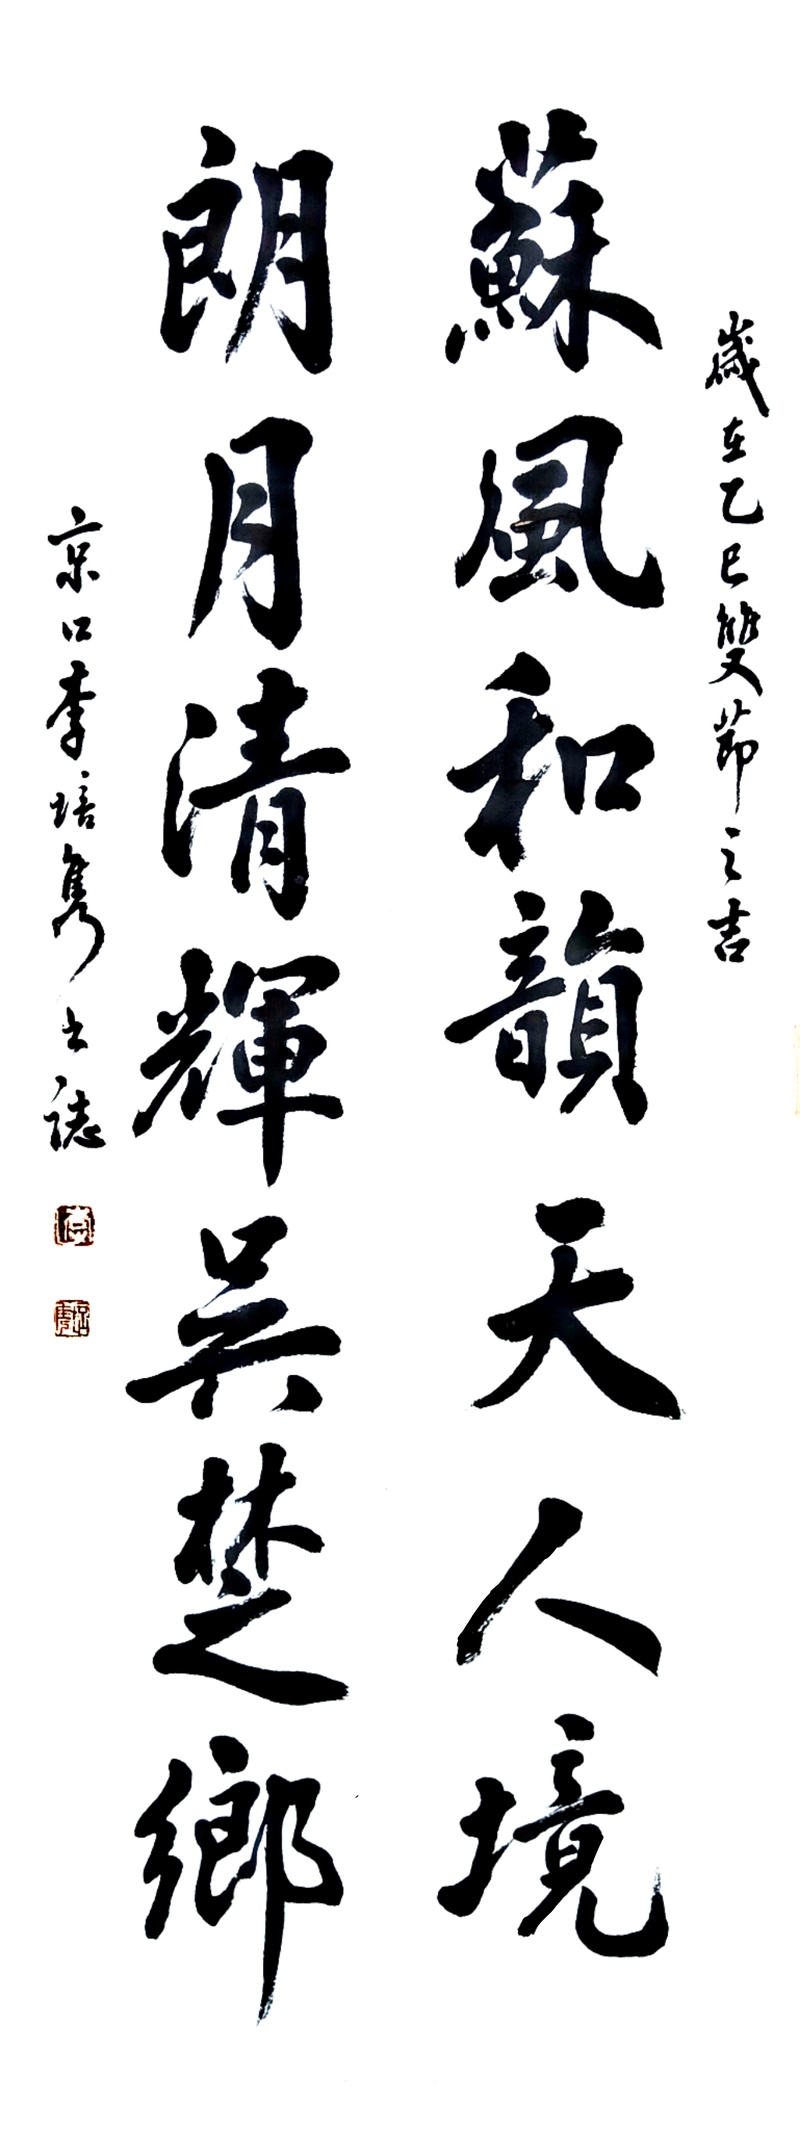 歲在乙巳雙節之吉
蘇風和韻天人境
朗月清輝吳楚鄉
京口李培隽書誌